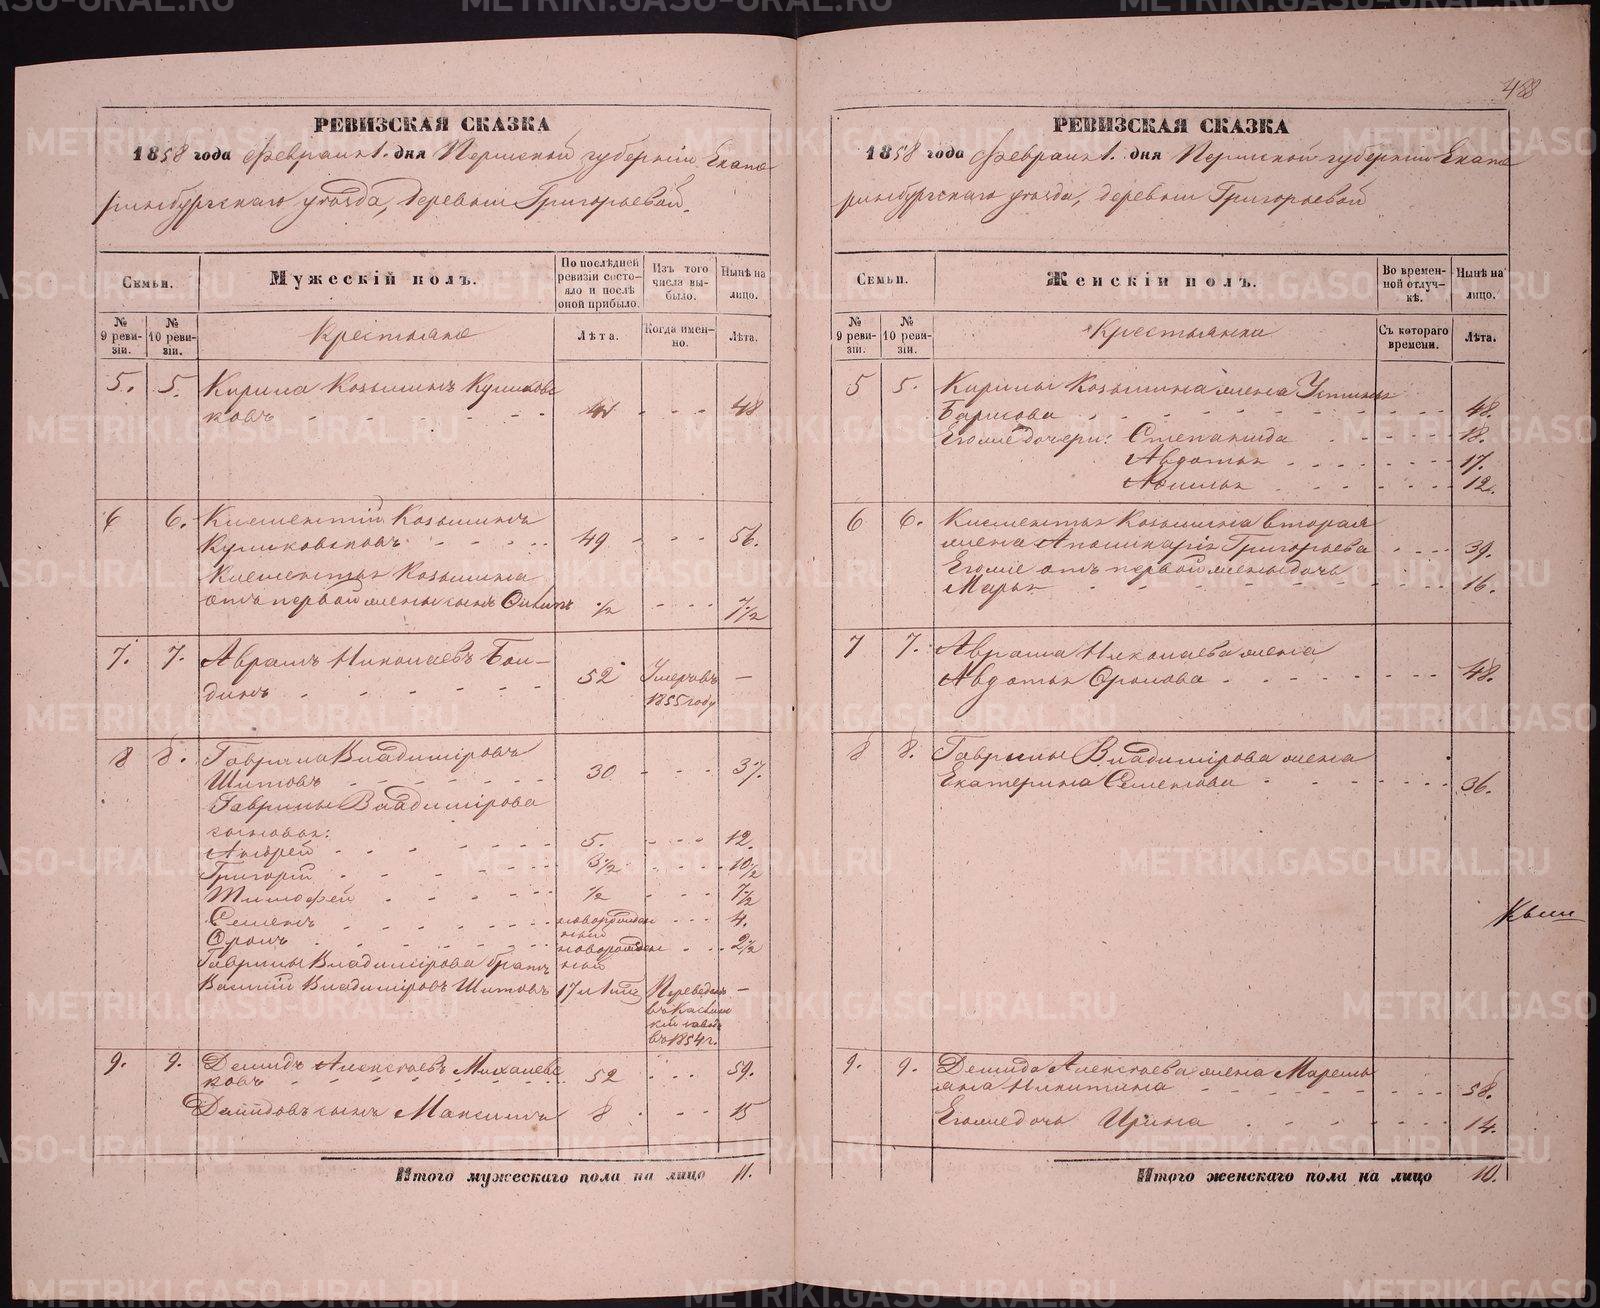 488
РЕВИЗСКАЯ СКАЗКА
1858 года февраля 1. дня Пермской губерніи Екате
ринбургскаго уезда, деревни Григорьевой.
Семьи.
Мужескій полъ.
По послѣдней ревизіи состояло и послѣ оной прибыло.
Изъ того числа выбыло.
Нынѣ на лицо.
№ 9 ревизіи.
№ 10 ревизіи.
Крестьяне
Лѣта.
Когда именно.
Лѣта.
5. 5. Кирила Козьминъ Куликов
ковъ 41 48
6 6. Климентій Козьминъ
Куликовсковъ 49 56.
Климентья Козьмина
отъ первой жены сынъ Филипъ ½ 7½
7. 7. Аврамъ Николаевъ Бол-
динъ 52 Умеръ въ —
1855 году
8 8. Гаврила Владиміровъ
Шитовъ 30 37.
Гаврилы Владимірова
сыновья:
Андрей 5. 12.
Григорій 3½ 10½
Тимофей ½ 7½
Семенъ новорожден ный 4.
Фролъ новорожден ный 2½
Гаврилы Владимірова братъ
Василій Владиміровъ Шитовъ 17 Переведенъ —
въ Каслин
скій заводъ
въ 1854 г.
9. 9. Демидъ Алексеевъ Михалевс
ковъ 52 59.
Демидовъ сынъ Максимъ 8 15
Итого мужескаго пола на лицо 11.
РЕВИЗСКАЯ СКАЗКА
1858 года февраля 1. дня Пермской губерніи Екате
ринбургскаго уезда, деревни Григорьевой
Семьи.
Женскій полъ.
Во временной отлучкѣ.
Нынѣ на лицо.
№ 9 ревизіи.
№ 10 ревизіи.
Крестьянки
Съ котораго времени.
Лѣта.
5 5. Кирилы Козьмина жена Устинья
Барисова 48.
Его же дочери: Степанида 18.
Авдотья 17.
Афимья 12.
6 6. Климентья Козьмина вторая
жена Аполинарія Григорьева 39.
Его же отъ первой жены дочь
Марья 16.
7 7. Аврама Николаева жена
Авдотья Фролова 48.
8 8. Гаврилы Владимірова жена
Екатерина Семенова 36.
9. 9. Демида Алексеева жена Маремь
яна Никитина 58.
Его же дочь Ирина 14.
Итого женскаго пола на лицо 10.
METRIKI.GASO-URAL.RU